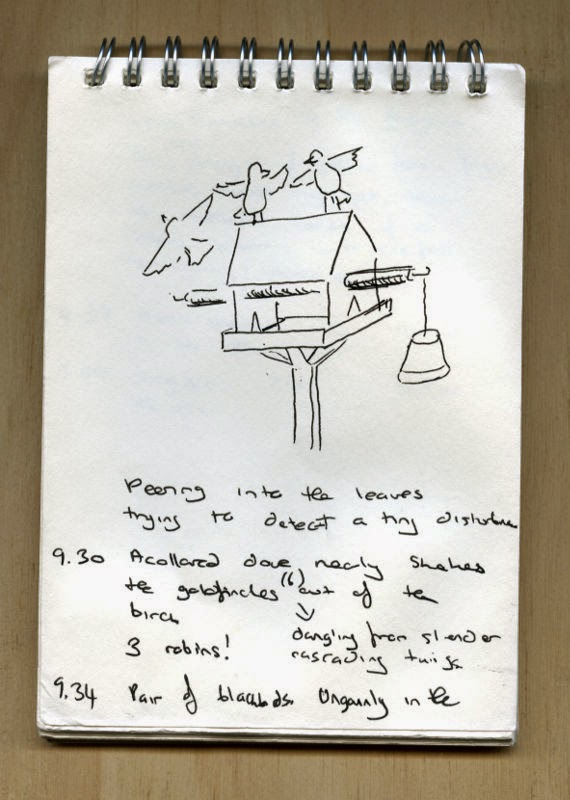 Peering into the leaves
trying to detect a tiny disturbance
9.30 A collared dove nearly shakes
the goldfinches (6) out of the
birch
dangling from slender
3 robins!
cascading twigs
9.34 Pair of blackbirds. Ungainly in the